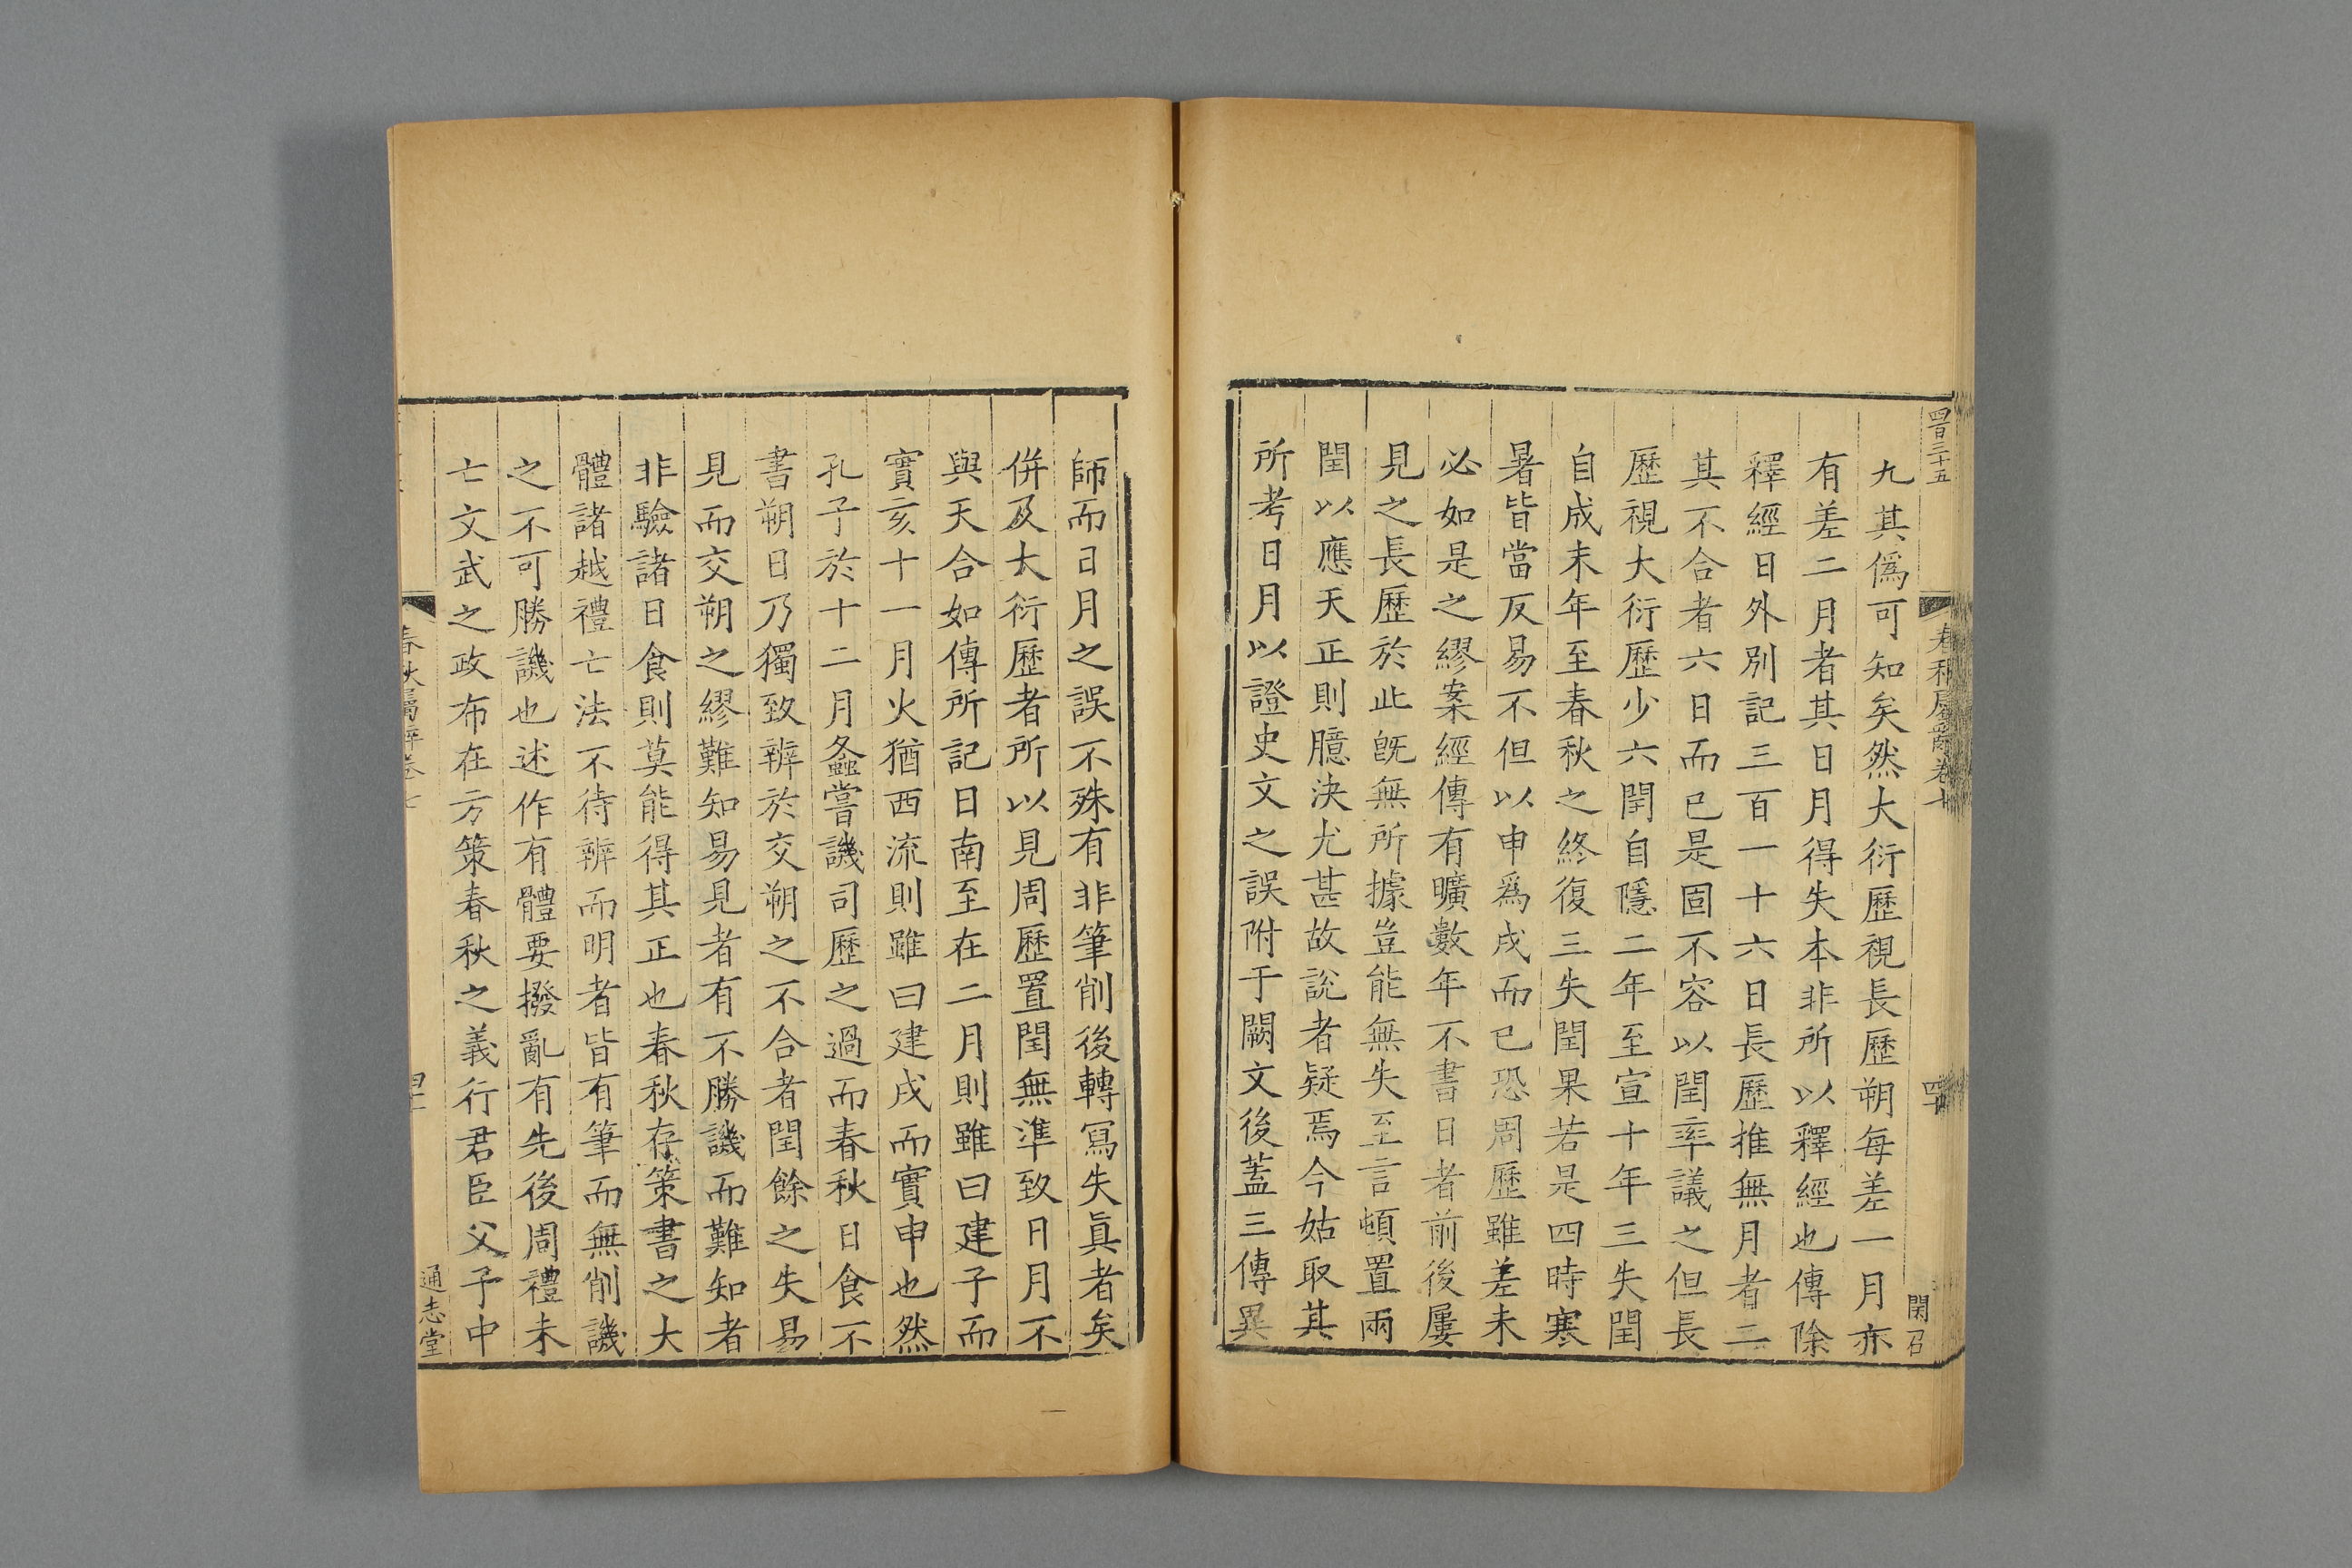 九其爲可知矣然大衍歷視長歷朔每差一月亦
有差二月者其日月得失本非所以釋經也傳除
釋經日外別記三百一十六日長歷推無月者二
其不合者六日而已是固不容以閏率議之但長
歷視大衍歷少六閏自隱二年至宣十年三失閏
自成末年至春秋之終復三失閏果若是四時寒
暑皆當反易不但以申爲戌而已恐周歷雖差未
必如是之繆案經傳有曠數年不書日者前後屢
見之長歷於此旣無所據豈能無失至言頓置兩
閏以應天正則臆決尤甚故說者疑焉今姑取其
所考日月以證史文之誤附于闕文後蓋三傳異
師而日月之誤不殊有非筆削後轉寫失眞者矣
併及大衍歷者所以見周歷置閏無準致日月不
與天合如傳所記日南至在二月則雖曰建子而
實亥十一月火猶西流則雖曰建戌而實申也然
孔子於十二月螽嘗譏司歷之過而春秋日食不
書朔日乃獨致辨於交朔之不合者閏餘之失易
見而交朔之繆難知易見者有不勝譏而難知者
非驗諸日食則莫能得其正也春秋存策書之大
體諸越禮亡法不待辨而明者皆有筆而無削譏
之不可勝譏也述作有體要撥亂有先後周禮未
亡文武之政布在方策春秋之義行君臣父子中
春秋屬辭卷七
通志堂